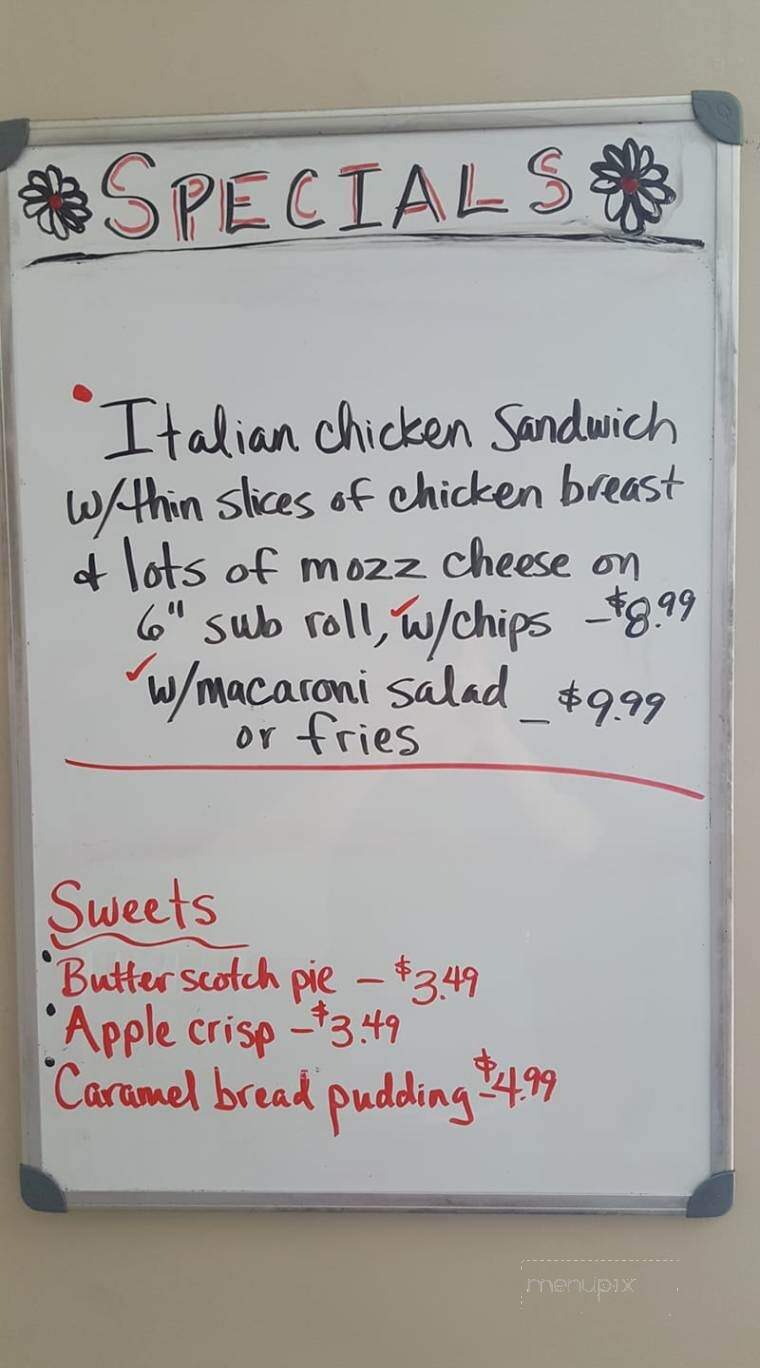 SPECIALS
Italian chicken Sandwich
w/thin slices of chicken breast
& lots of mozz cheese on
6" sub roll, w/chips - $8.99
w/macaroni salad - $9.99
or fries
Sweets
Butterscotch pie - $3.49
Apple crisp - $3.49
Caramel bread pudding - $4.99
menupix